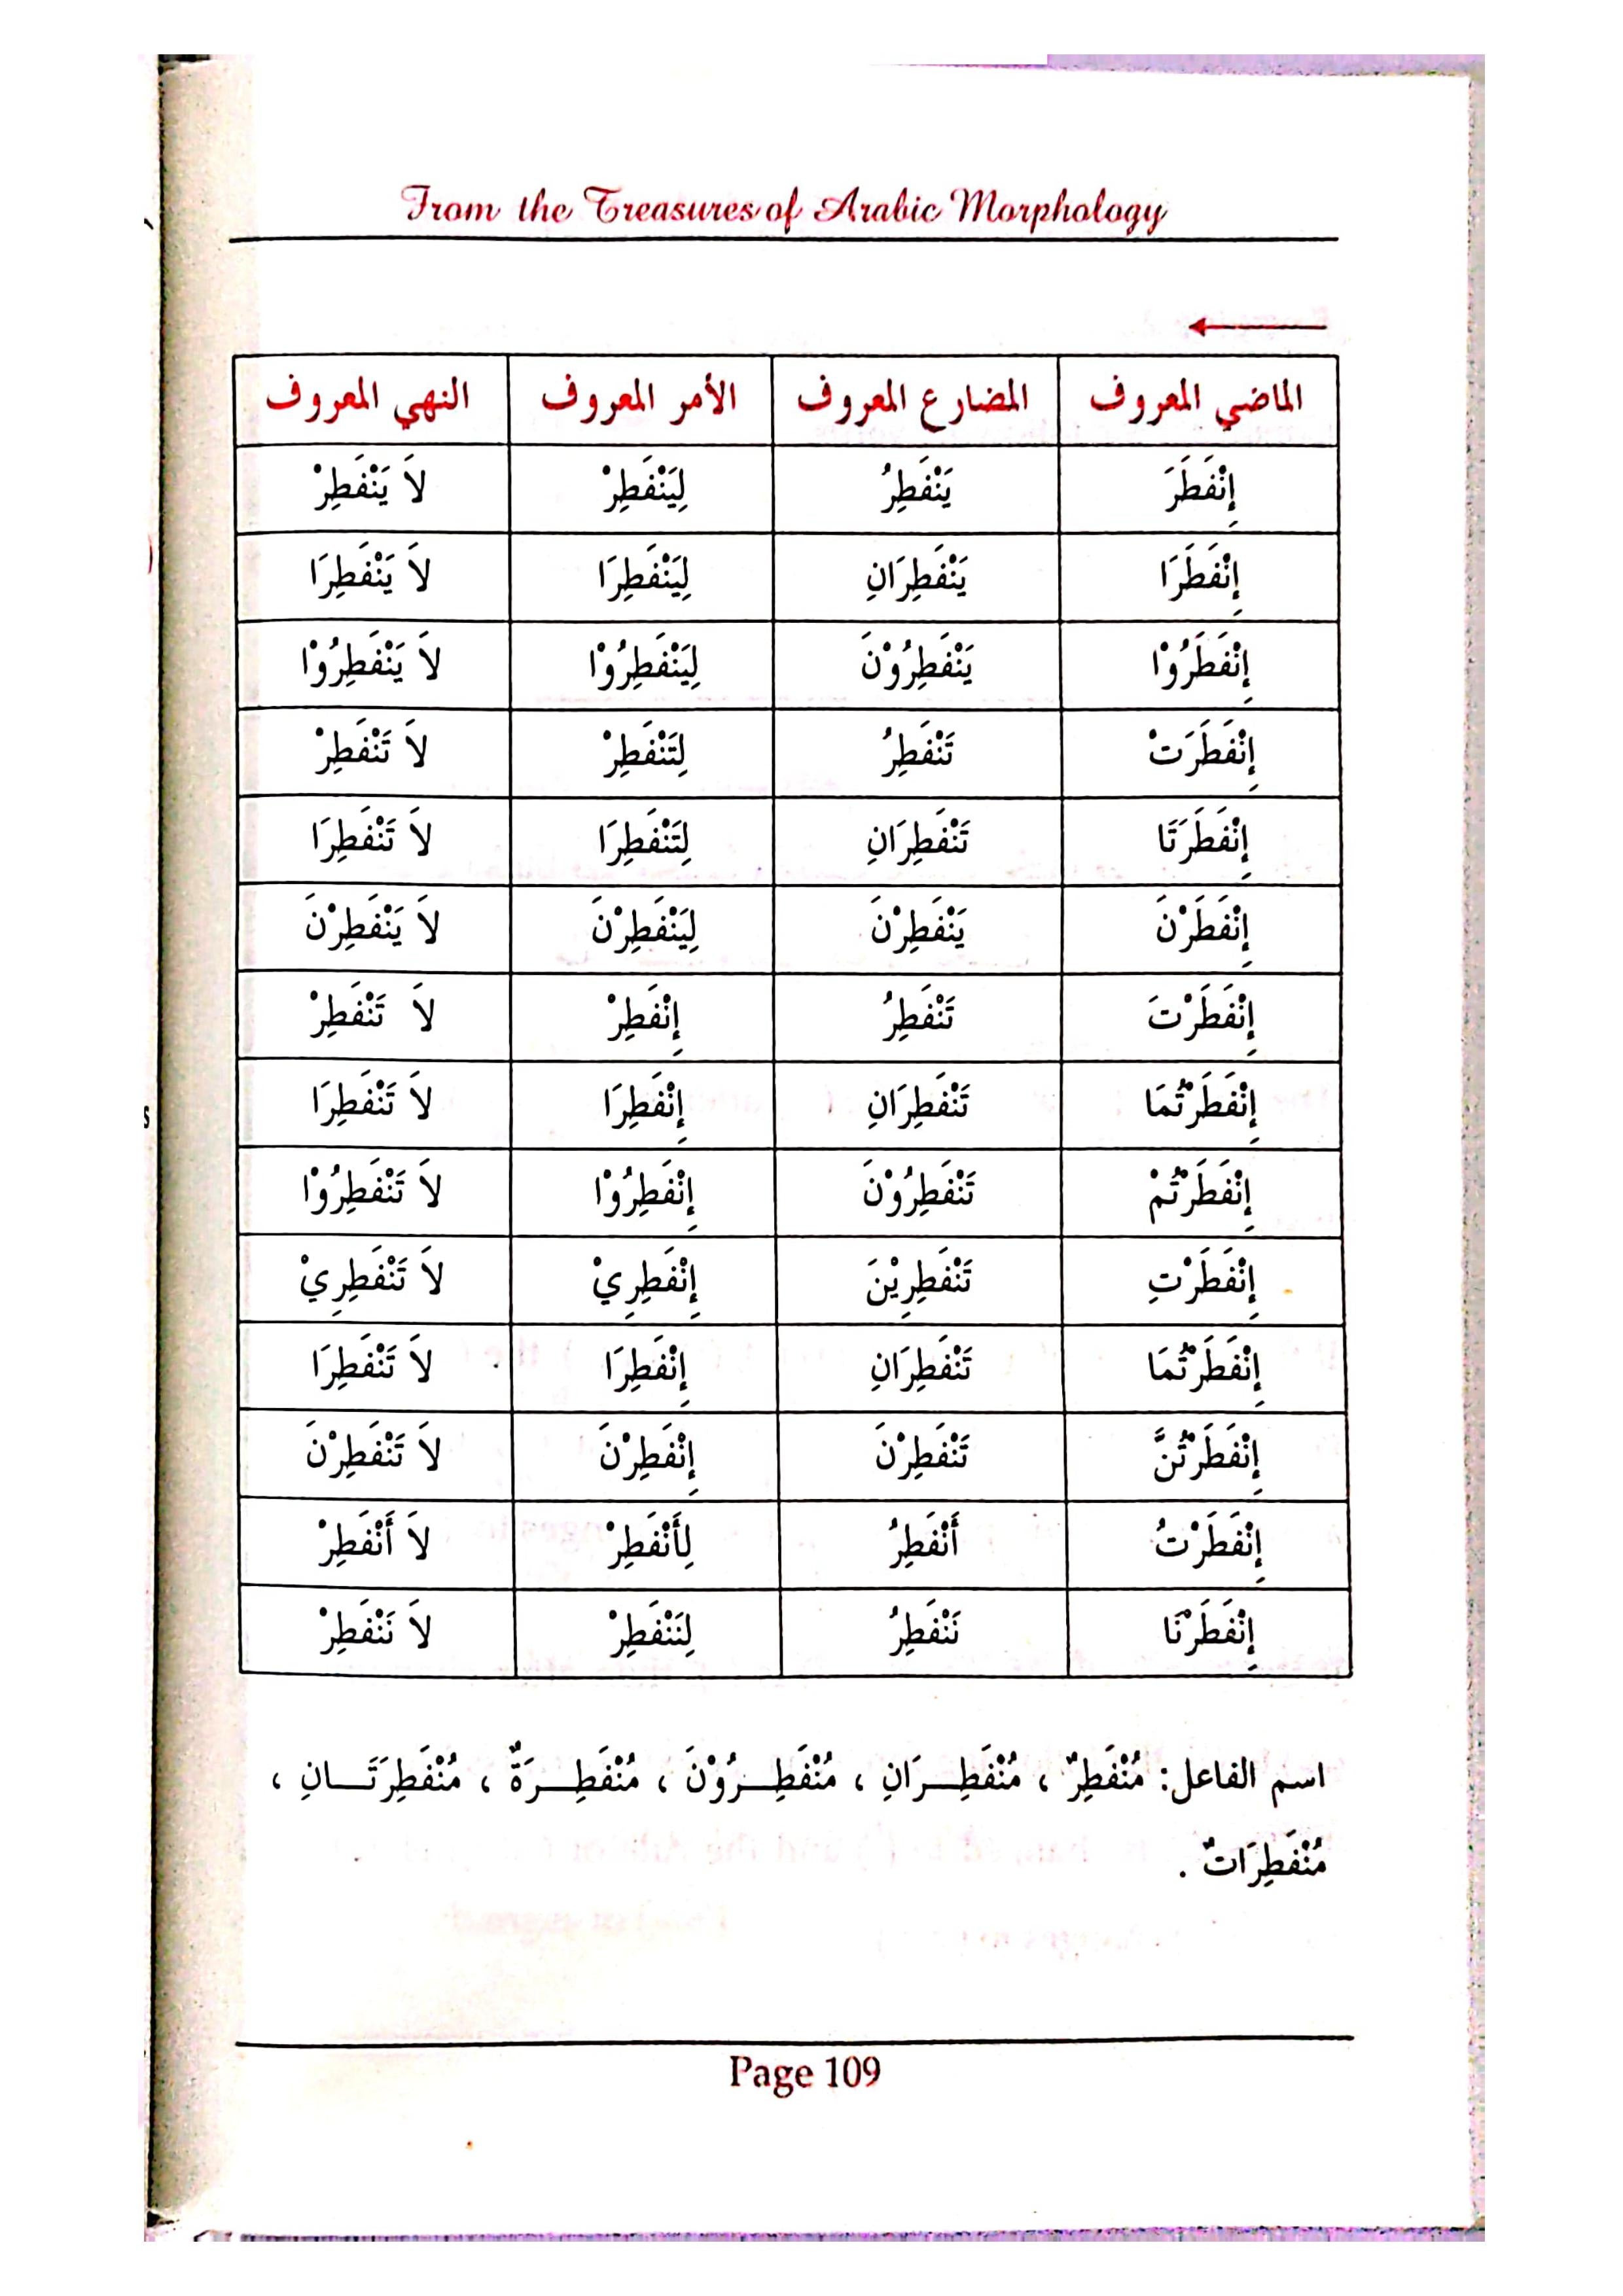 From the Treasures of Arabic Morphology
الماضي المعروف المضارع المعروف الأمر المعروف النهي المعروف
إِنْفَطَرَ يَنْفَطِرُ لِيَنْفَطِرْ لاَ يَنْفَطِرْ
إِنْفَطَرَا يَنْفَطِرَانِ لِيَنْفَطِرَا لاَ يَنْفَطِرَا
إِنْفَطَرُوْا يَنْفَطِرُوْنَ لِيَنْفَطِرُوْا لاَ يَنْفَطِرُوْا
إِنْفَطَرَتْ تَنْفَطِرُ لِتَنْفَطِرْ لاَ تَنْفَطِرْ
إِنْفَطَرَتَا تَنْفَطِرَانِ لِتَنْفَطِرَا لاَ تَنْفَطِرَا
إِنْفَطَرْنَ يَنْفَطِرْنَ لِيَنْفَطِرْنَ لاَ يَنْفَطِرْنَ
إِنْفَطَرْتَ تَنْفَطِرُ إِنْفَطِرْ لاَ تَنْفَطِرْ
إِنْفَطَرْتُمَا تَنْفَطِرَانِ إِنْفَطِرَا لاَ تَنْفَطِرَا
إِنْفَطَرْتُمْ تَنْفَطِرُوْنَ إِنْفَطِرُوْا لاَ تَنْفَطِرُوْا
إِنْفَطَرْتِ تَنْفَطِرِيْنَ إِنْفَطِرِيْ لاَ تَنْفَطِرِيْ
إِنْفَطَرْتُمَا تَنْفَطِرَانِ إِنْفَطِرَا لاَ تَنْفَطِرَا
إِنْفَطَرْتُنَّ تَنْفَطِرْنَ إِنْفَطِرْنَ لاَ تَنْفَطِرْنَ
إِنْفَطَرْتُ أَنْفَطِرُ لِأَنْفَطِرْ لاَ أَنْفَطِرْ
إِنْفَطَرْنَا نَنْفَطِرُ لِنَنْفَطِرْ لاَ نَنْفَطِرْ
اسم الفاعل: مُنْفَطِرٌ ، مُنْفَطِــرَانِ ، مُنْفَطِــرُوْنَ ، مُنْفَطِــرَةٌ ، مُنْفَطِرَتَــانِ ،
مُنْفَطِرَاتٌ .
Page 109